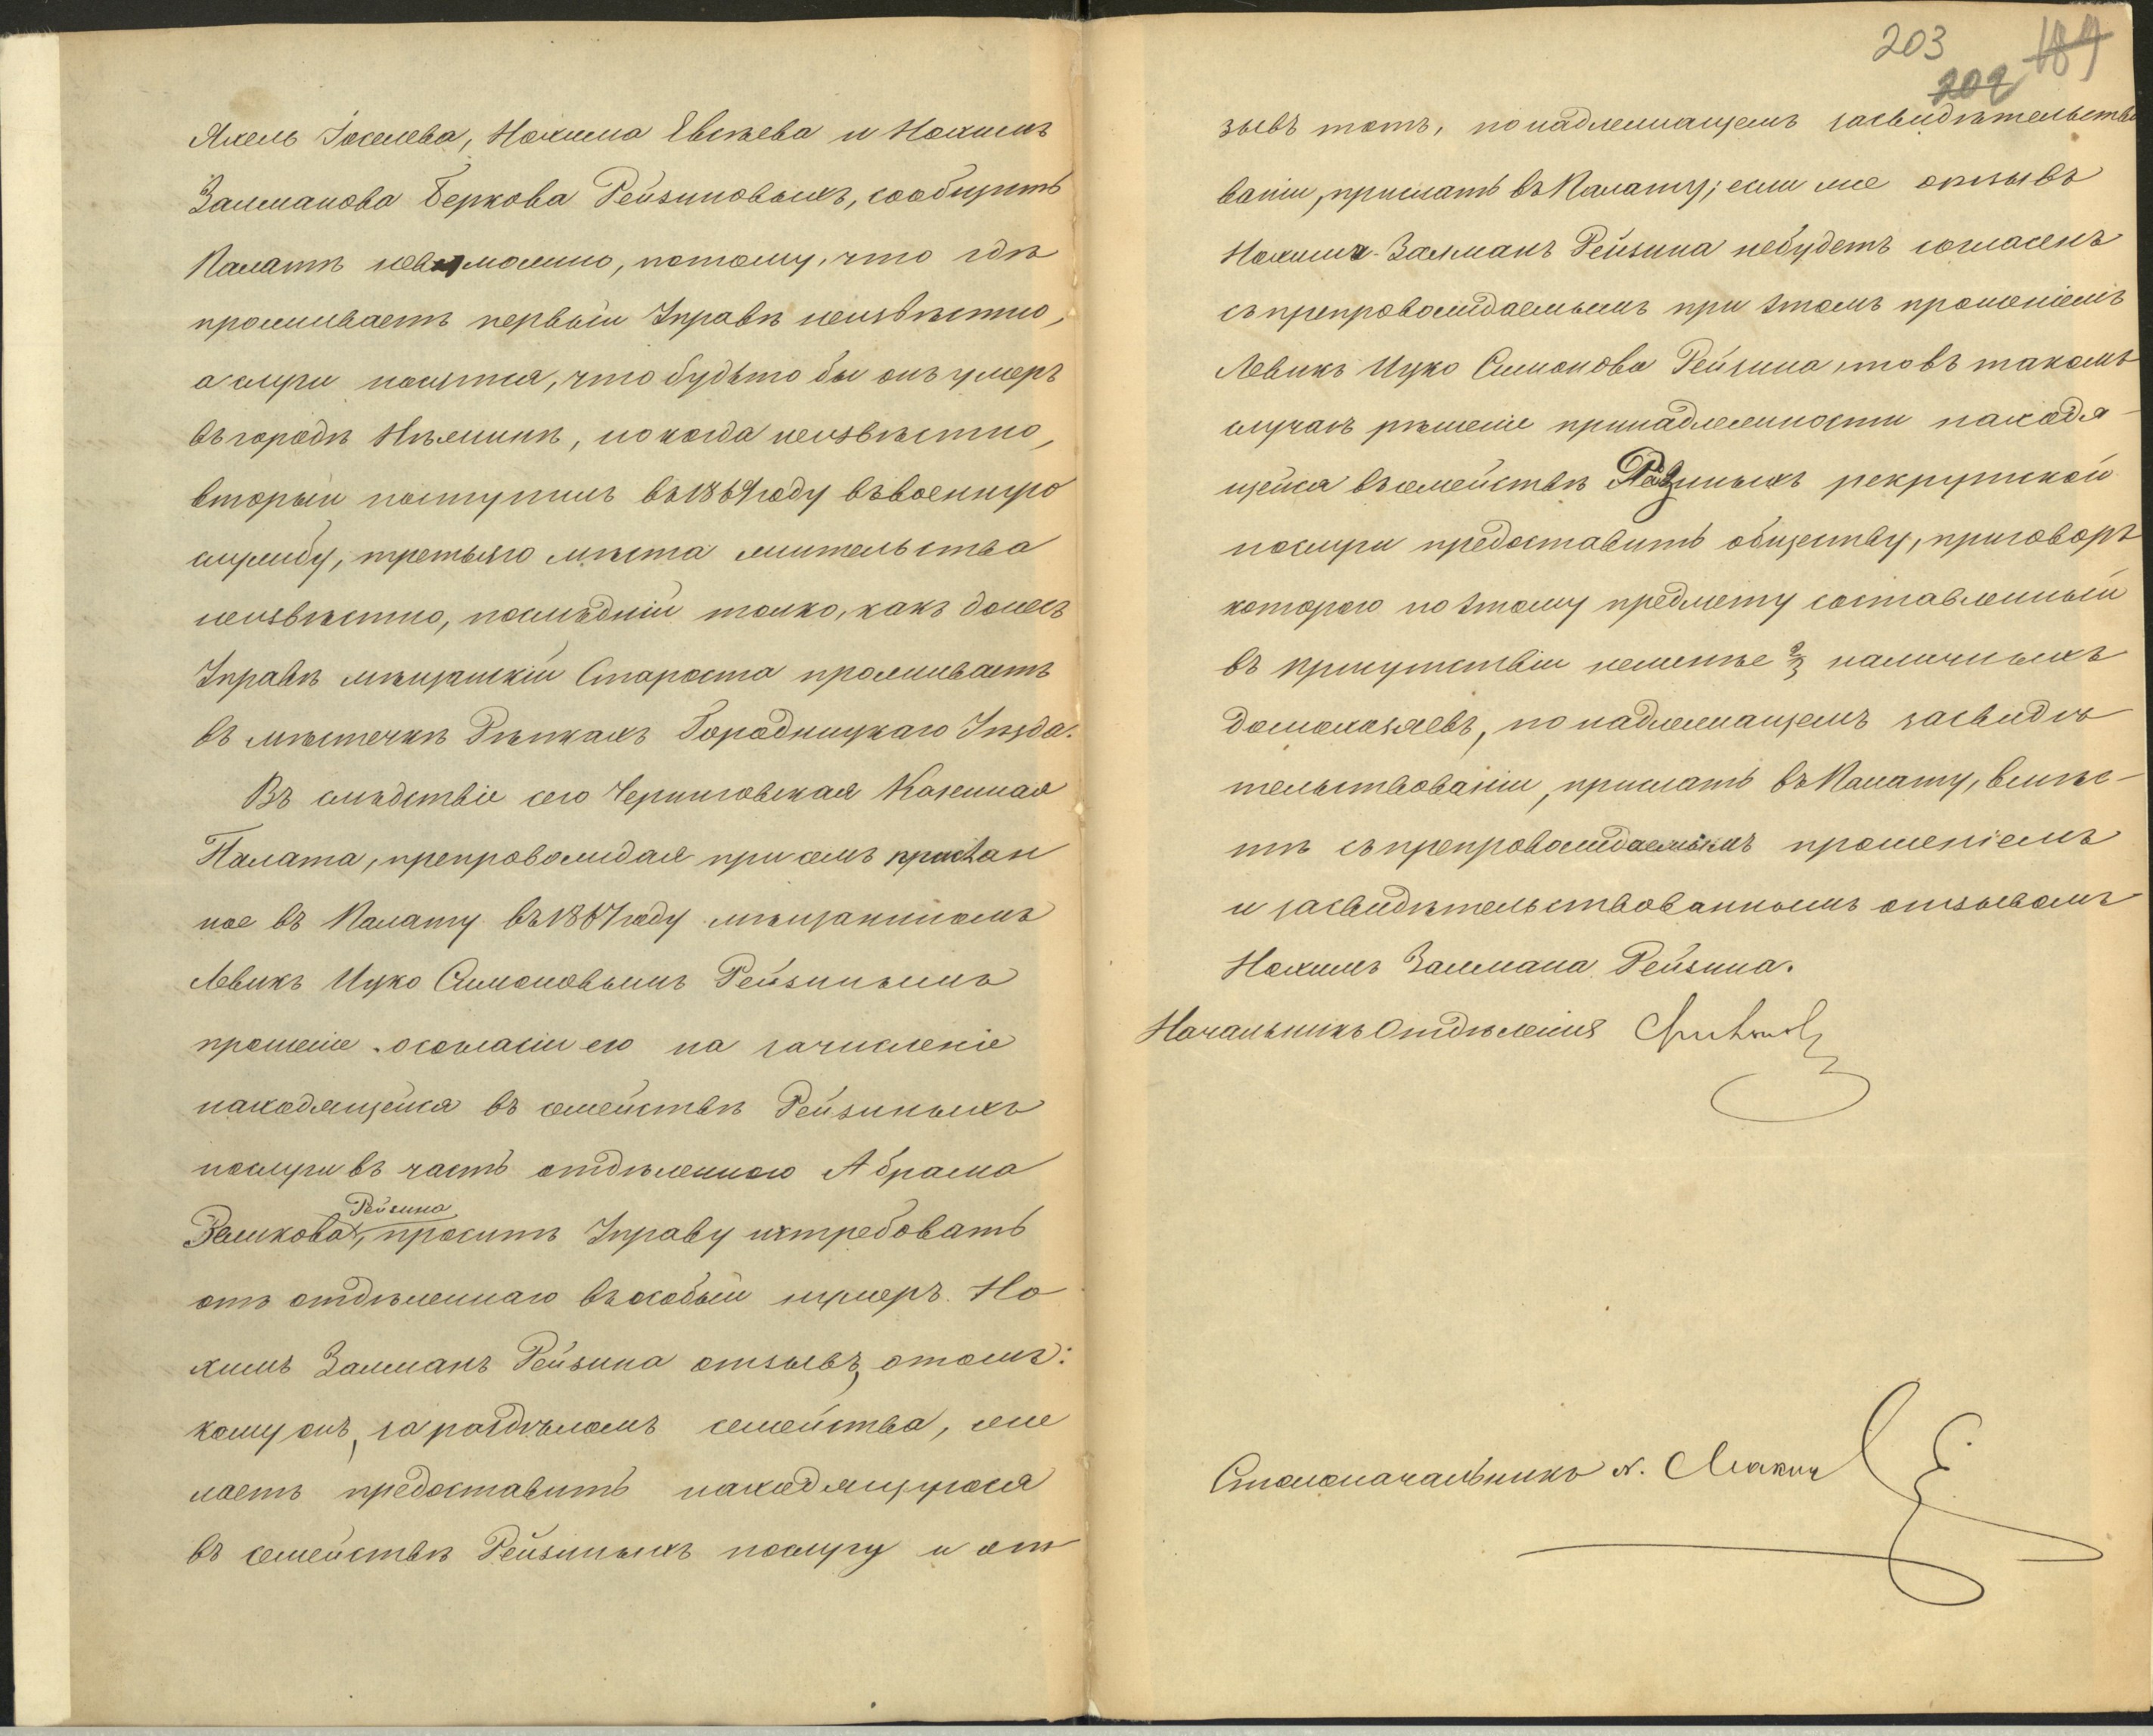 Яхель Іоселева, Нохима Евсѣева и Нохимъ
Залманова Беркова Рейзиновыхъ, сообщить
Палатѣ невозможно, потому, что гдѣ
проживаетъ первый Управѣ неизвѣстно,
а слухи носятся, что будьто бы онъ умеръ
въ городѣ Нѣжинѣ, но когда неизвѣстно,
вторый поступилъ въ 1869 году въ военную
службу, третьяго мѣста жительства
неизвѣстно, послѣдній только, какъ донесъ
Управѣ мѣщанскій Староста проживаетъ
въ мѣстечкѣ Рѣпкахъ Городницкаго Уѣзда.
Въ слѣдствіе сего Черниговская Казенная
Палата, препровождая при семъ присlan
ное въ Палату въ 1867 году мѣщаниномъ
Левикъ Ицко Симоновымъ Рейзинымъ
прошеніе о согласіи его на зачисленіе
находящейся въ семействѣ Рейзиныхъ
послуги въ часть отдѣленного Абрама
Рейзина
Зеликова, проситъ Управу истребовать
отъ отдѣленнаго въ особый нумеръ Но
химъ Залманъ Рейзина отзывъ, о томъ:
кому онъ, за раздѣломъ семейства, же
лаетъ предоставить находящуюся
въ семействѣ Рейзиныхъ послугу и от
203
202
189
зывъ тотъ, по надлежащемъ засвидѣтельство
ваніи, прислать въ Палату; если же отзывъ
Нохима-Залманъ Рейзина не будетъ согласенъ
съ препровождаемымъ при этомъ прошеніемъ
Левикъ Ицко Симонова Рейзина, то въ такомъ
случаѣ рѣшеніе принадлежности находя-
щейся въ семействѣ Рейзиныхъ рекрутской
послуги предоставить обществу, приговоръ
которого по этому предмету составленный
въ присутствіи неменѣе 2/3 наличныхъ
домохозяевъ, по надлежащемъ засвидѣ
тельствованіи, прислать въ Палату, вмѣс-
тѣ съ препровождаемымъ прошеніемъ
и засвидѣтельствованнымъ отзывомъ
Нохимъ Залмана Рейзина.
Начальникъ Отдѣленія
Столоначальникъ